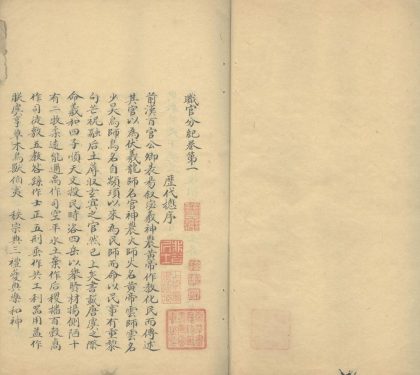 職官分紀卷第一
歷代總序
前漢百官公卿表易叙宓羲神農黃帝作教化民而傳述
其官以為伏羲龍師名官神農火師火名黃帝雲師雲名
少昊鳥師鳥名自顓頊以來為民師而命以民事有重黎
句芒祝融后土蓐收玄冥之官然已上矣書載唐虞之際
命羲和四子順天文授民時咨四岳以舉賢材揚側陋十
有二牧柔遠能邇禹作司空平水土棄作后稷播百穀卨
作司徒敷五教咎繇作士正五刑垂作共工利器用益作
朕虞育草木鳥獸伯夷 秩宗典三禮夔典樂和神